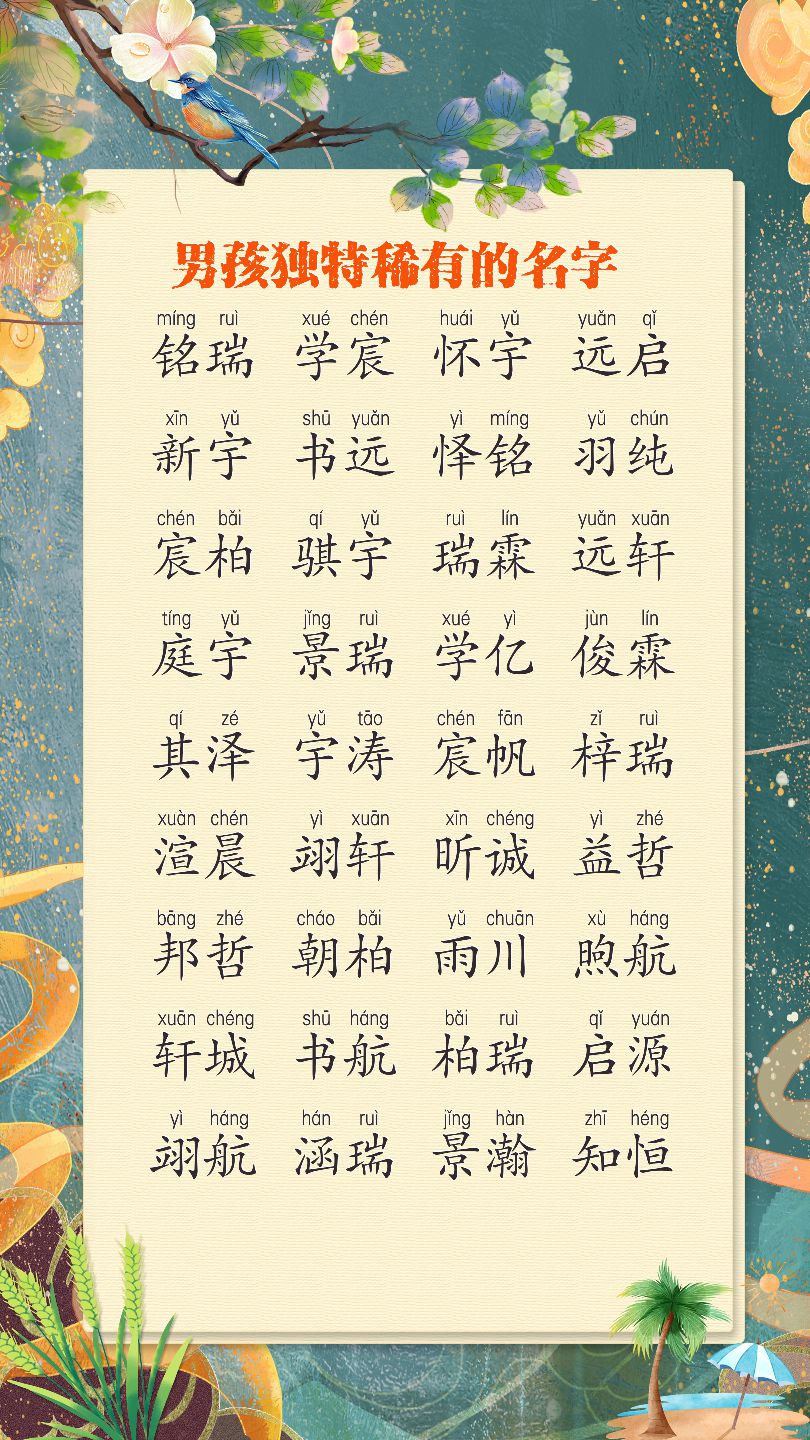 男孩独特稀有的名字
míng ruì xué chén huái yǔ yuǎn qǐ
铭瑞 学宸 怀宇 远启
xīn yǔ shū yuǎn yì míng yǔ chún
新宇 书远 怿铭 羽纯
chén bǎi qí yǔ ruì lín yuǎn xuān
宸柏 骐宇 瑞霖 远轩
tíng yǔ jǐng ruì xué yì jùn lín
庭宇 景瑞 学亿 俊霖
qí zé yǔ tāo chén fān zǐ ruì
其泽 宇涛 宸帆 梓瑞
xuàn chén yì xuān xīn chéng yì zhé
渲晨 翊轩 昕诚 益哲
bāng zhé cháo bǎi yǔ chuān xù háng
邦哲 朝柏 雨川 煦航
xuān chéng shū háng bǎi ruì qǐ yuán
轩城 书航 柏瑞 启源
yì háng hán ruì jǐng hàn zhī héng
翊航 涵瑞 景瀚 知恒